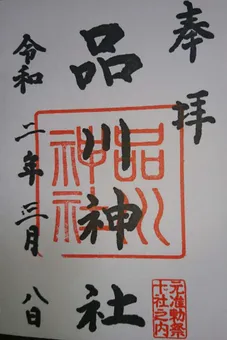 奉拝
品川神社
令和二年三月八日
品川神社
元准勅祭
十社之内